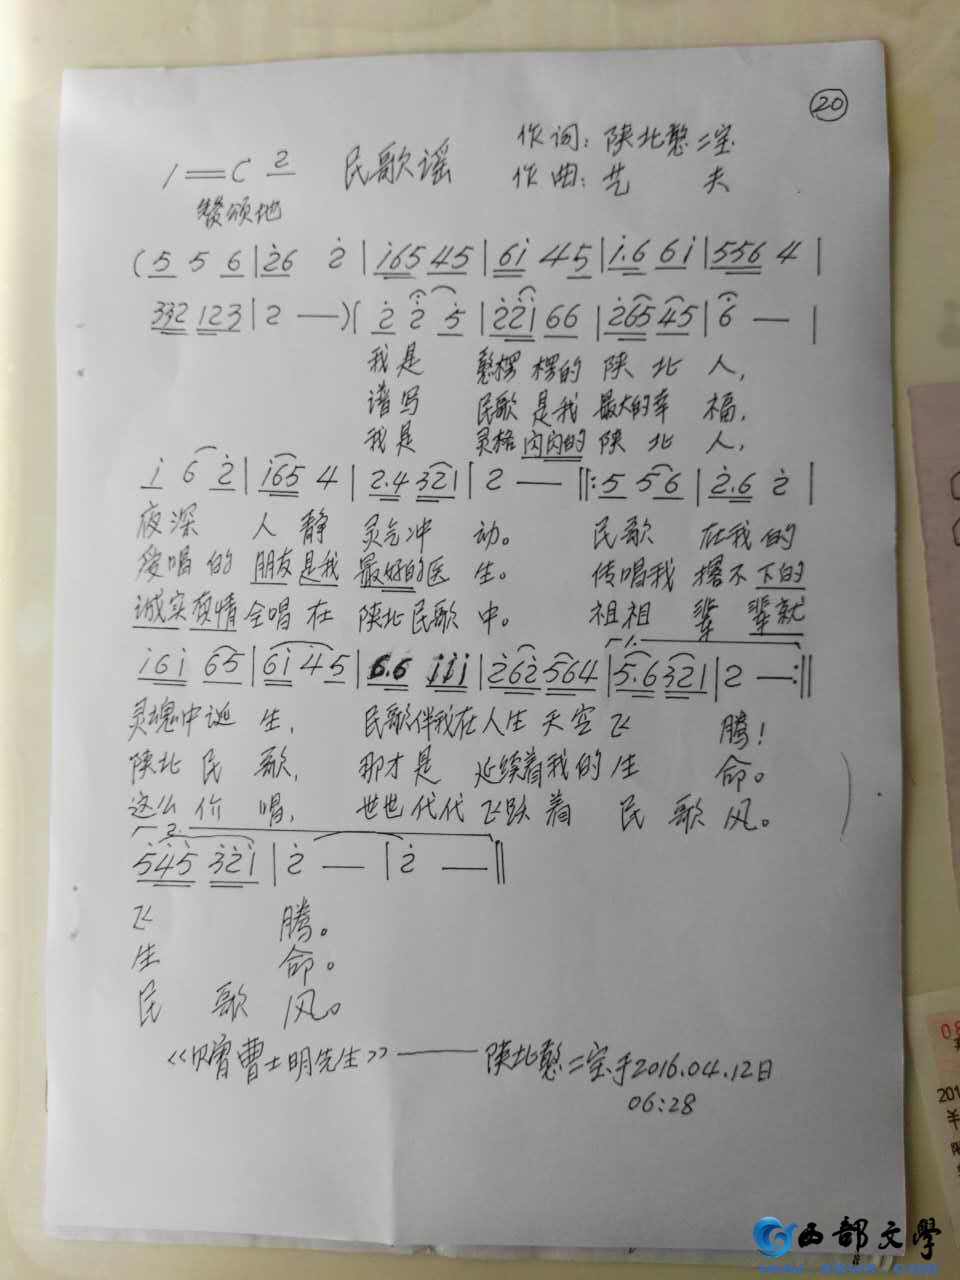 20
作词：陕北憨二宝
1=C 2 民歌谣
作曲：艺 夫
赞颂地
(5 5 6 | 2̇6 2̇ | i65 45 | 6i 45 | i.6 6i | 556 4 |
332 123 | 2 —)| 2̇ 2̇ 5̇ | 2̇2̇i 66 | 2̇65 45 | 6 — |
我是 憨楞楞的陕北人，
谱写 民歌是我最大的幸福，
我是 灵格内内的陕北人，
i 6 2̇ | i65 4 | 2.4 321 | 2 — ‖: 5 56 | 2̇.6 2̇ |
夜深人静灵气冲动。 民歌在我的
爱唱的朋友是我最好的医生。 传唱我撂不下的
诚实有情全唱在陕北民歌中。 祖祖辈辈就
i6i 65 | 6i 45 | 6.6 iii | 2̇62̇ 564 | 1. 5.6 321 | 2 — :‖
灵魂中诞生， 民歌伴我在人生天空飞腾！
陕北民歌， 那才是延续着我的生命。
这么价唱， 世世代代飞跃着民歌风。
2. 5̇4̇5̇ 3̇2̇i | 2̇ — | 2̇ — ‖
飞 腾。
生 命。
民歌风。
曹士明先生>> —— 陕北憨二宝于2016.04.12日
06:28
08
201
羊
西部文學
www.xbwx.com